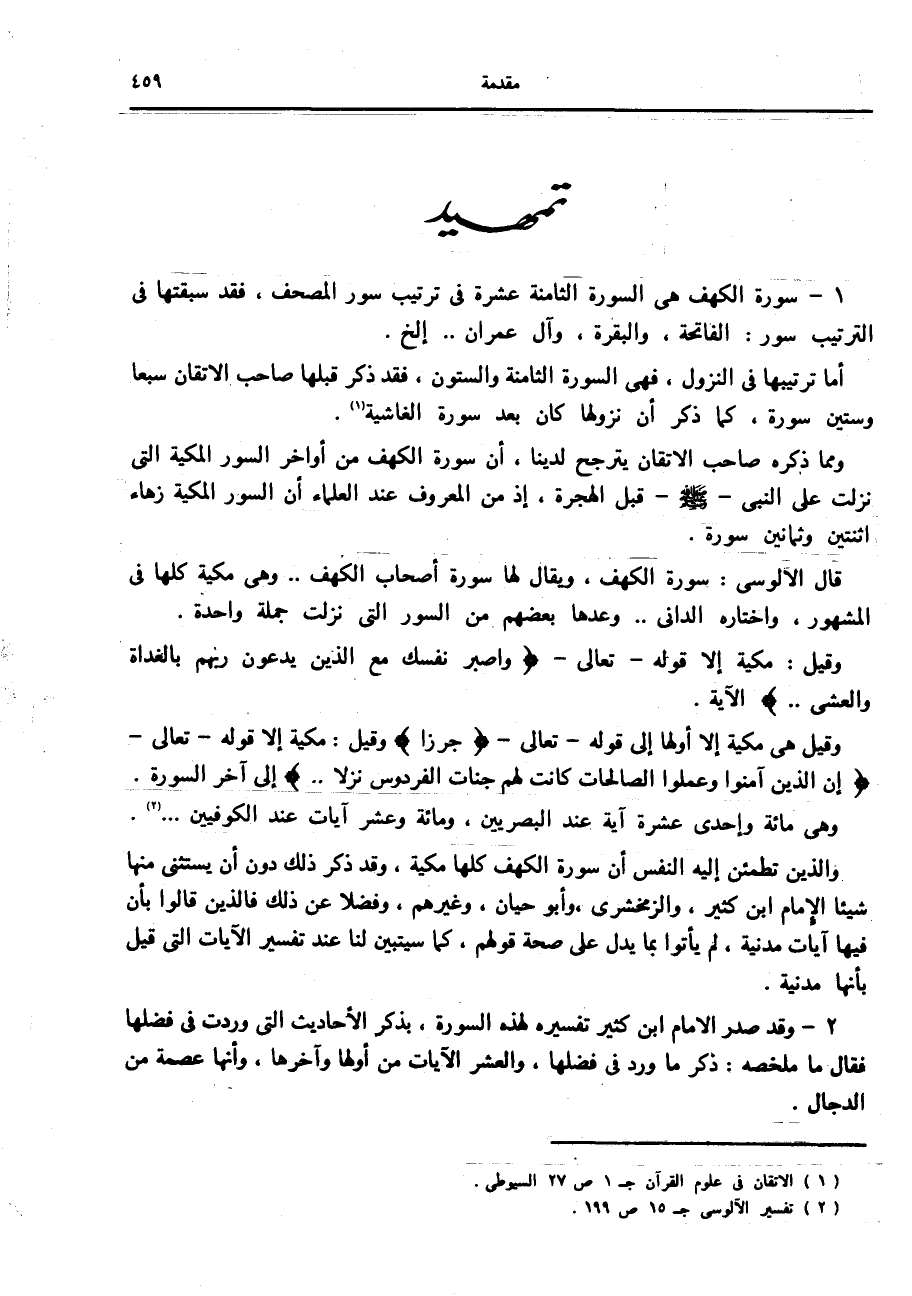 مقدمة ٤٥٩
تمهيد
١ – سورة الكهف هى السورة الثامنة عشرة فى ترتيب سور المصحف ، فقد سبقتها فى
الترتيب سور : الفاتحة ، والبقرة ، وآل عمران .. إلخ .
أما ترتيبها فى النزول ، فهى السورة الثامنة والستون ، فقد ذكر قبلها صاحب الاتقان سبعا
وستين سورة ، كما ذكر أن نزولها كان بعد سورة الغاشية(١) .
ومما ذكره صاحب الاتقان يترجح لدينا ، أن سورة الكهف من أواخر السور المكية التى
نزلت على النبى – ﷺ – قبل الهجرة ، إذ من المعروف عند العلماء أن السور المكية زهاء
اثنتين وثمانين سورة .
قال الآلوسى : سورة الكهف ، ويقال لها سورة أصحاب الكهف .. وهى مكية كلها فى
المشهور ، واختاره الدانى .. وعدها بعضهم من السور التى نزلت جملة واحدة .
وقيل : مكية إلا قوله – تعالى – ﴿ واصبر نفسك مع الذين يدعون ربهم بالغداة
والعشى .. ﴾ الآية .
وقيل هى مكية إلا أولها إلى قوله – تعالى – ﴿ جرزا ﴾ وقيل : مكية إلا قوله – تعالى –
﴿ إن الذين آمنوا وعملوا الصالحات كانت لهم جنات الفردوس نزلا .. ﴾ إلى آخر السورة .
وهى مائة وإحدى عشرة آية عند البصريين ، ومائة وعشر آيات عند الكوفيين ...(٢) .
والذين تطمئن إليه النفس أن سورة الكهف كلها مكية ، وقد ذكر ذلك دون أن يستثنى منها
شيئا الإمام ابن كثير ، والزمخشرى ،وأبو حيان ، وغيرهم ، وفضلا عن ذلك فالذين قالوا بأن
فيها آيات مدنية ، لم يأتوا بما يدل على صحة قولهم ، كما سيتبين لنا عند تفسير الآيات التى قيل
بأنها مدنية .
٢ – وقد صدر الامام ابن كثير تفسيره لهذه السورة ، بذكر الأحاديث التى وردت فى فضلها
فقال ما ملخصه : ذكر ما ورد فى فضلها ، والعشر الآيات من أولها وآخرها ، وأنها عصمة من
الدجال .
( ١ ) الاتقان فى علوم القرآن جـ ١ ص ٢٧ السيوطى .
( ٢ ) تفسير الآلوسى جـ ١٥ ص ١٩٩ .